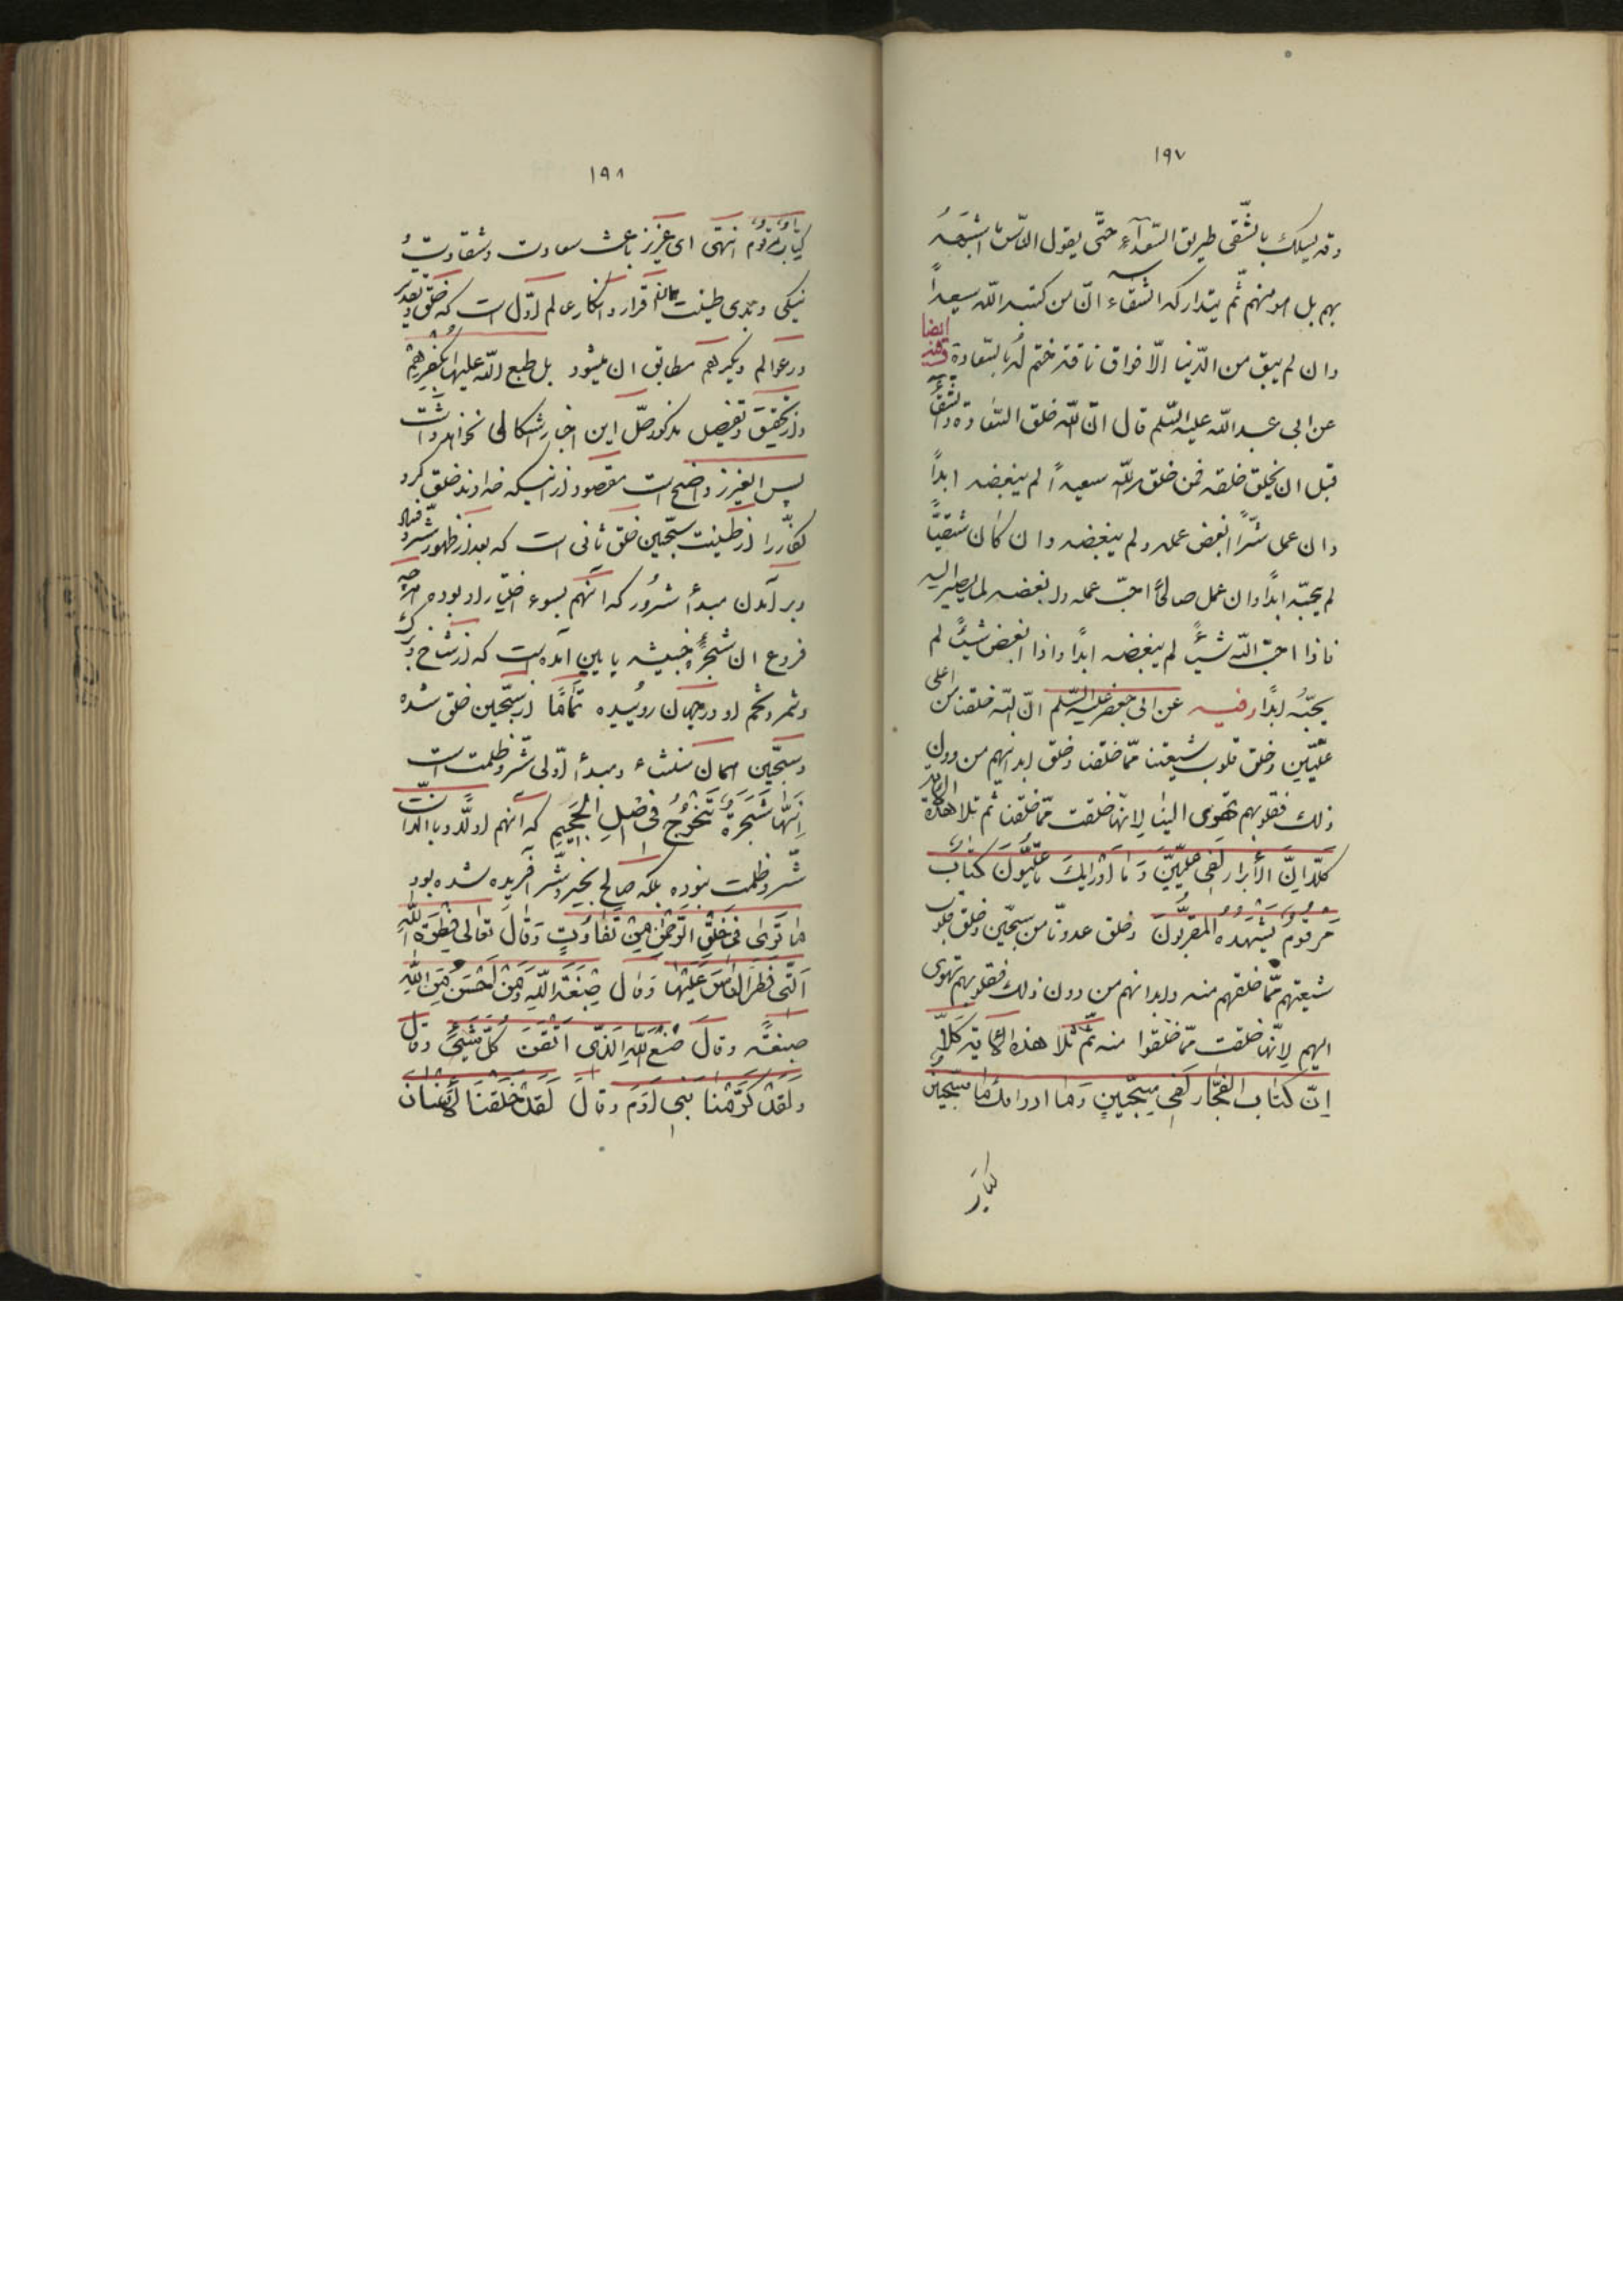 ١٩٧
وقد يسلك بالشّقى طريق السّعدآء حتّى يقول النّاس ما اشبهه
بهم بل هو منهم ثمّ يتداركه الشّقاء انّ من كتبه اللّه سعيداً
وان لم يبق من الدّنيا الّا فواق ناقة ختم له بالسّعادة وفيه ايضا
عن ابى عبد اللّه عليه السّلم قال انّ اللّه خلق السّعادة والشّقاء
قبل ان يخلق خلقه فمن خلق اللّه سعيداً لم يبغضه ابداً
وان عمل شرّاً ابغض عمله ولم يبغضه وان كان شقيّاً
لم يحبّه ابداً وان عمل صالحاً احبّ عمله وابغضه لما يصير اليه
فاذا احبّ اللّه شيئاً لم يبغضه ابداً واذا ابغض شيئاً لم
يحبّه ابداً وفيه عن ابى جعفر عليه السّلم انّ اللّه خلقنا من اعلى
علّيّين وخلق قلوب شيعتنا ممّا خلقنا وخلق ابدانهم من دون
ذلك فقلوبهم تهوى الينا لانّها خلقت ممّا خلقنا ثم تلا هذه الاية
كلّا انّ الأبرار لفى علّيّين وما أدرايك ما علّيّون كتاب
مرقوم يشهده المقرّبون وخلق عدوّنا من سجّين وخلق قلوب
شيعتهم ممّا خلقهم منه وابدانهم من دون ذلك فقلوبهم تهوى
اليهم لانّها خلقت ممّا خلقوا منه ثمّ تلا هذه الاية كلّا
إنّ كتاب الفجّار لفى سجّين وما ادرايك ما سجّين
كتاب
١٩٨
كتاب مرقوم انتهى اى عزيز باعث سعادت وشقاوت و
نيكى وبدى طينت همانا اقرار وانكار عالم اوّل است كه خلق وتقدير
در عوالم ديگر هم مطابق ان ميشود بل طبع اللّه عليها بكفرهم
واز تحقيق وتفصيل مذكور حلّ اين اخبار اشكالى نخواهد داشت
پس ايعزيز واضح است مقصود از انيكه خداوند خلق كرد
كفّار را از طينت سجّين خلق ثانى است كه بعد از ظهور شرّ وفساد
وبر آمدن مبدأ شرور كه آنهم بسوء اختيار او بوده هر چه
فروع ان شجرۀ خبيثه پايين آمده است كه از شاخ وبرگ
وثمر وتخم او در جهان روئيده تماما از سجّين خلق شده
وسجّين همان منشاء ومبدأ اوّلى شرّ وظلمت است
انّها شجرة تخرج فى اصل الجحيم كه آنهم اوّلا وبالذات
شرّ وظلمت نبوده بلكه صالح بخير وشرّ آفريده شده بود
ما ترى فى خلق الرّحمن من تفاوت وقال تعالى فطرة اللّه
الّتى فطر النّاس عليها وقال صبغة اللّه ومن احسن من اللّه
صبغة وقال صنع اللّه الّذى اتقن كلّ شيئ وقال
ولقد كرّمنا بنى آدم وقال لقد خلقنا الانسان